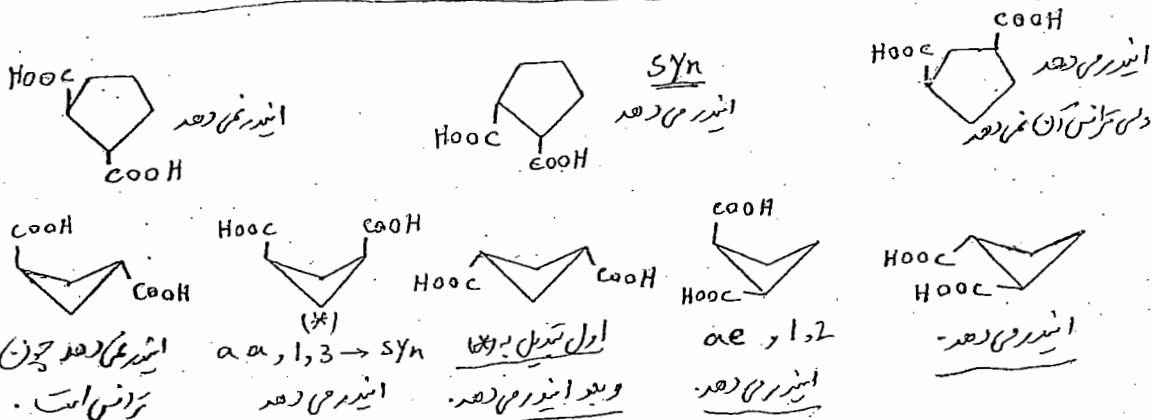 HOOC
COOH
انیدر نمی دهد
HOOC
COOH
syn
انیدر می دهد
HOOC
COOH
انیدر می دهد
ولی ترانس آن نمی دهد
COOH
COOH
انیدر نمی دهد چون
ترانس است.
HOOC
COOH
(*)
a a , 1,3 → syn
انیدر می دهد
HOOC
COOH
اول تبدیل به (*)
و بعد انیدر می دهد.
COOH
HOOC
ae , 1,2
انیدر می دهد.
HOOC
HOOC
انیدر می دهد.